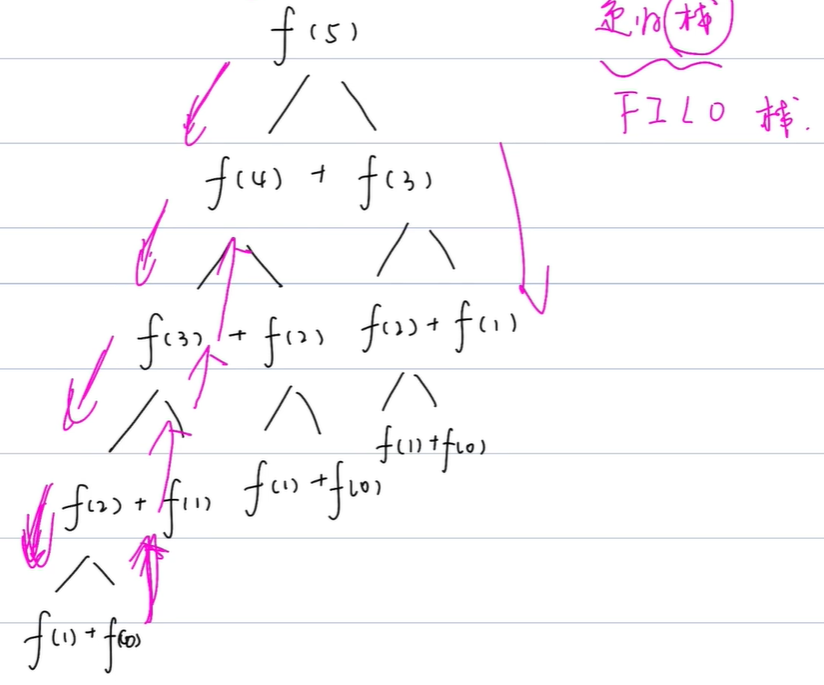 f(5)
递归栈
FILO 栈.
f(4) + f(3)
f(3) + f(2) f(2) + f(1)
f(2) + f(1) f(1) + f(0) f(1) + f(0)
f(1) + f(0)